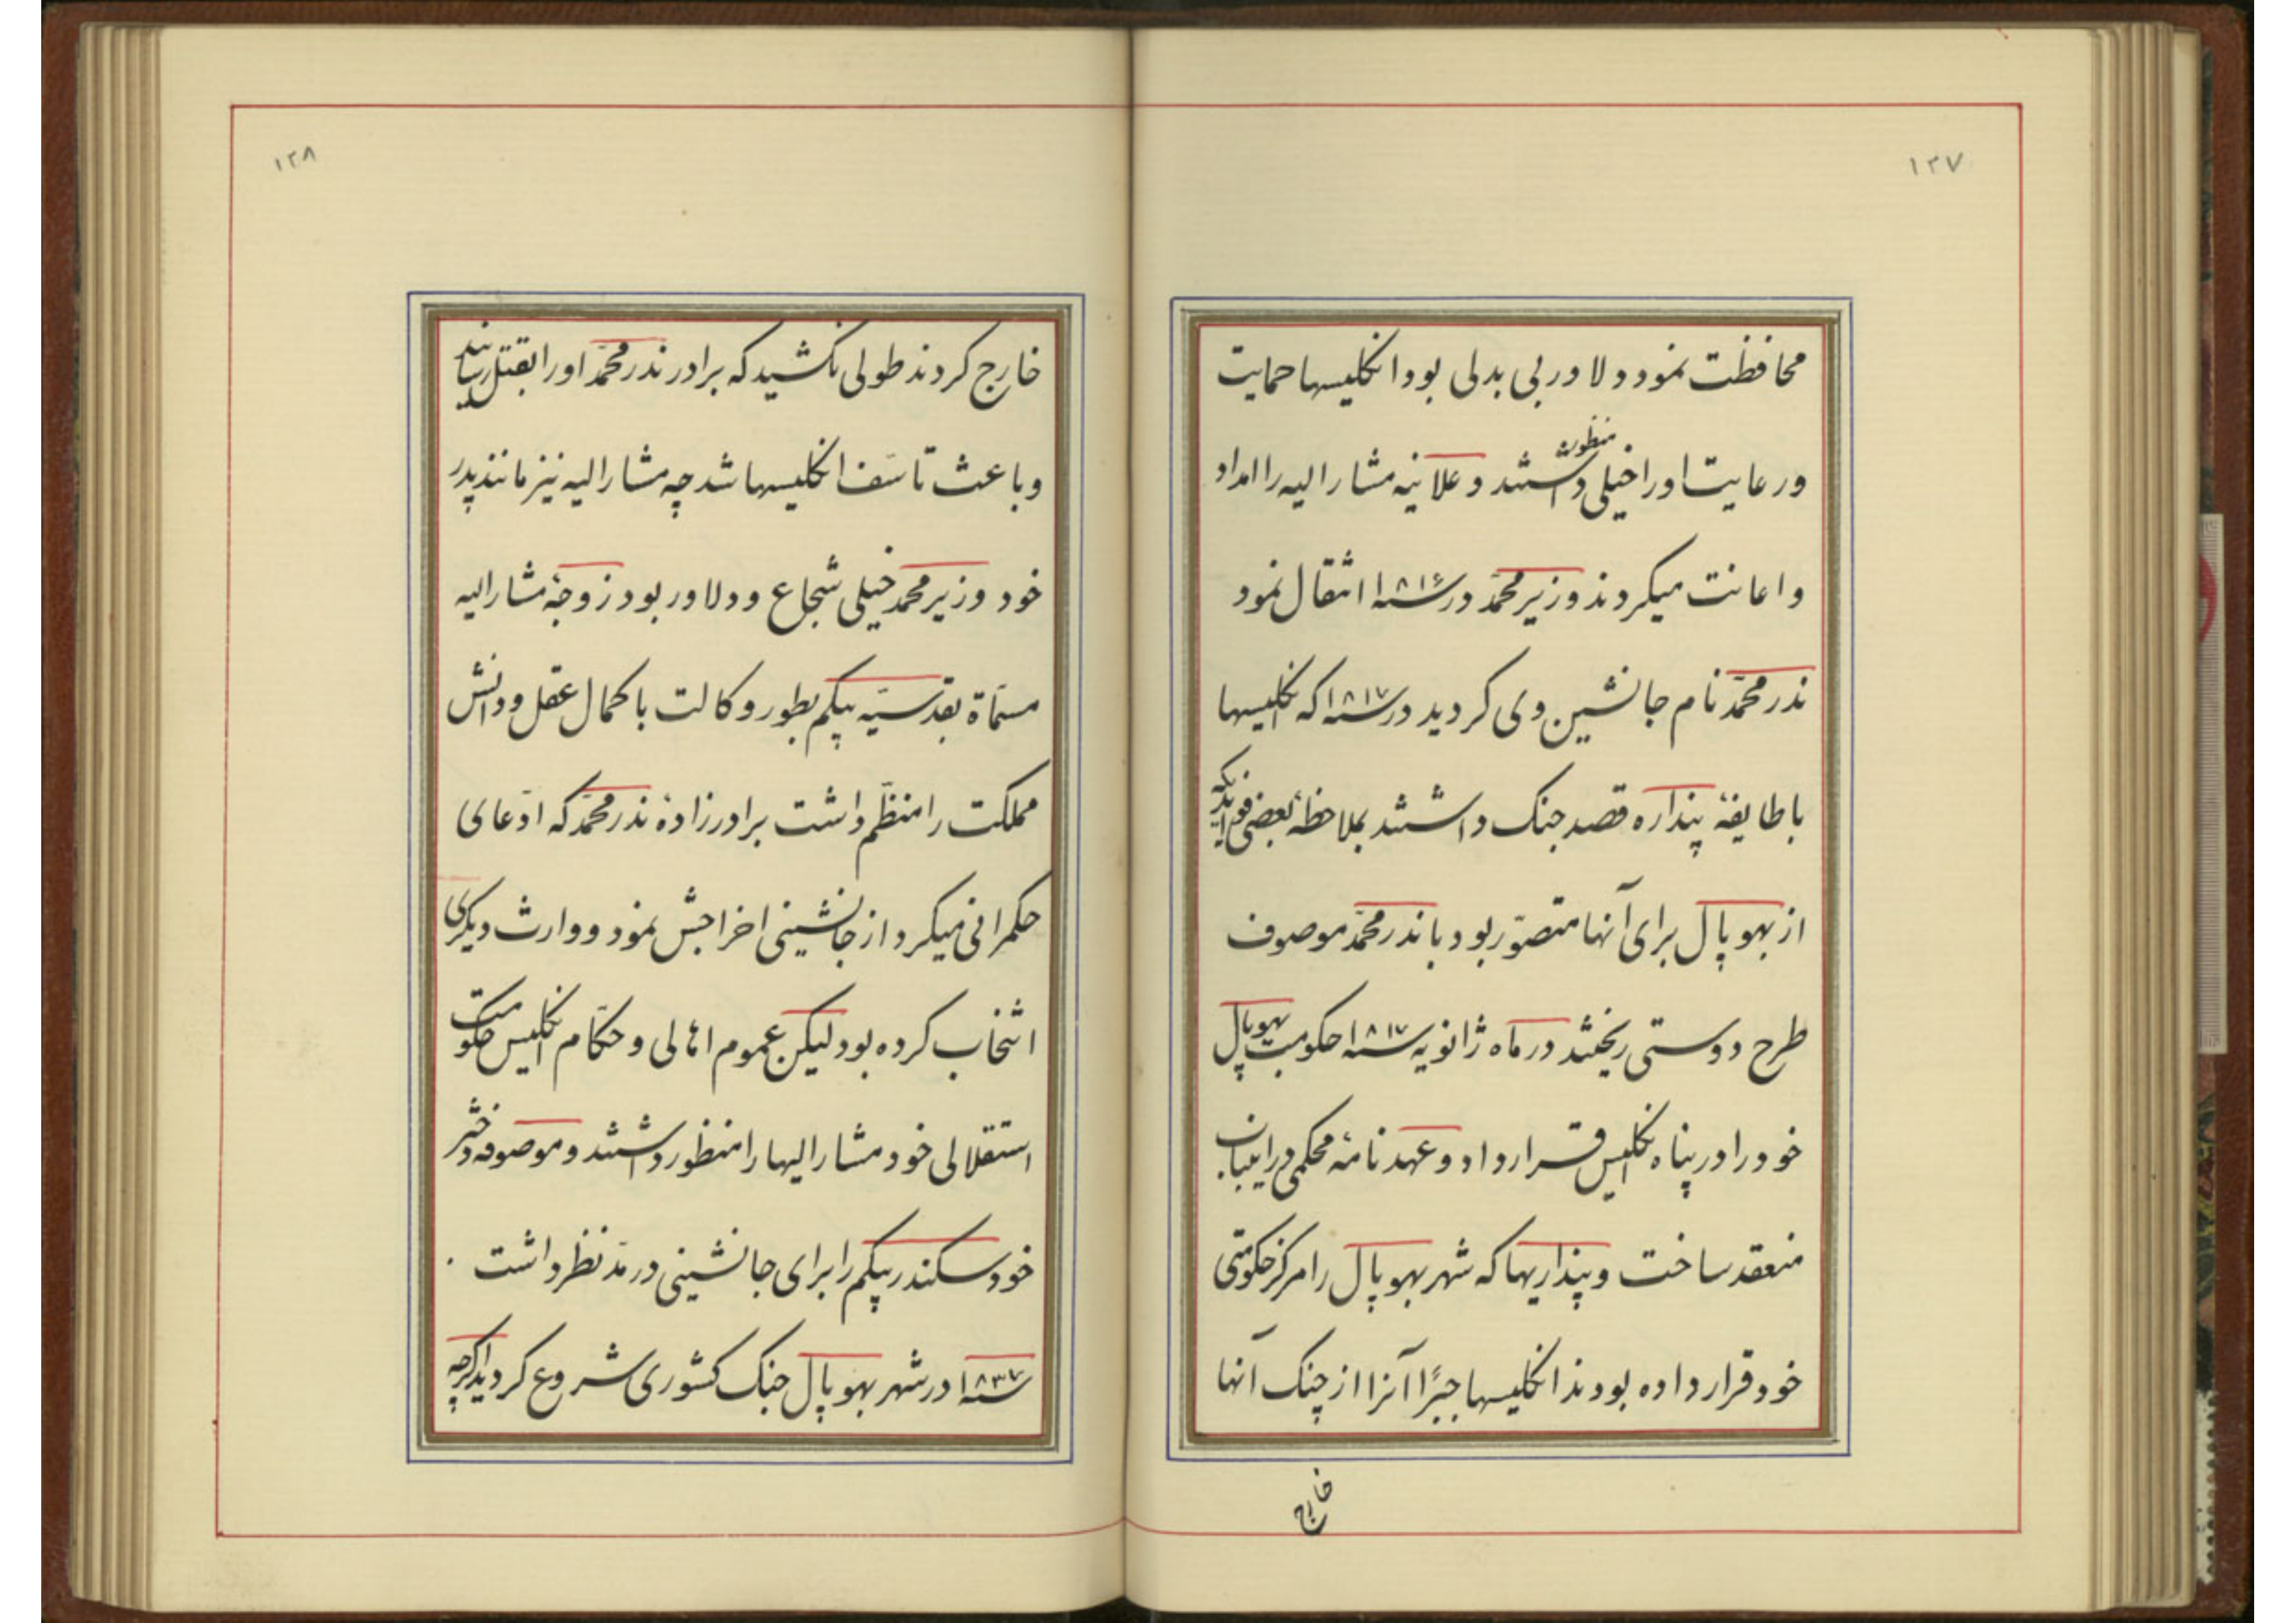 ۱۲۷
محافظت نمود و دلاور بی بدلی بود انکلیسها حمایت
و رعایت او را خیلی منظور داشتند و علانیه مشار الیه را امداد
و اعانت میکردند وزیر محمّد در سنه ۱۸۱۶ انتقال نمود
نذر محمّد نام جانشین وی کردید در سنه ۱۸۱۷ که انکلیسها
با طایفهٔ پنداره قصد جنک داشتند بملاحظهٔ بعضی فوایدیکه
از بهوپال برای آنها متصوّر بود با نذر محمّد موصوف
طرح دوستی ریختند در ماه ژانویه سنه ۱۸۱۷ حکومت بهوپال
خود را در پناه انکلیس قرار داد و عهدنامهٔ محکمی در این باب
منعقد ساخت و پنداریها که شهر بهوپال را مرکز حکومتی
خود قرار داده بودند انکلیسها جبرًا آنرا از چنک آنها
خارج
۱۲۸
خارج کردند طولی نکشید که برادر نذر محمّد او را بقتل رسانید
و باعث تاسّف انکلیسها شد چه مشار الیه نیز مانند پدر
خود وزیر محمد خیلی شجاع و دلاور بود زوجهٔ مشار الیه
مسمّاة بقدسیّه بیکم بطور وکالت با کمال عقل و دانش
مملکت را منظّم داشت برادرزادهٔ نذر محمّد که ادّعای
حکمرانی میکرد از جانشینی اخراجش نمود و وارث دیکری
انتخاب کرده بود لیکن عموم اهالی و حکّام انکلیس حکومت
استقلالی خود مشار الیها را منظور داشتند و موصوفه دختر
خود سکندر بیکم را برای جانشینی در مدّ نظر داشت .
سنه ۱۸۳۷ در شهر بهوپال جنک کشوری شروع کردید اکرچه